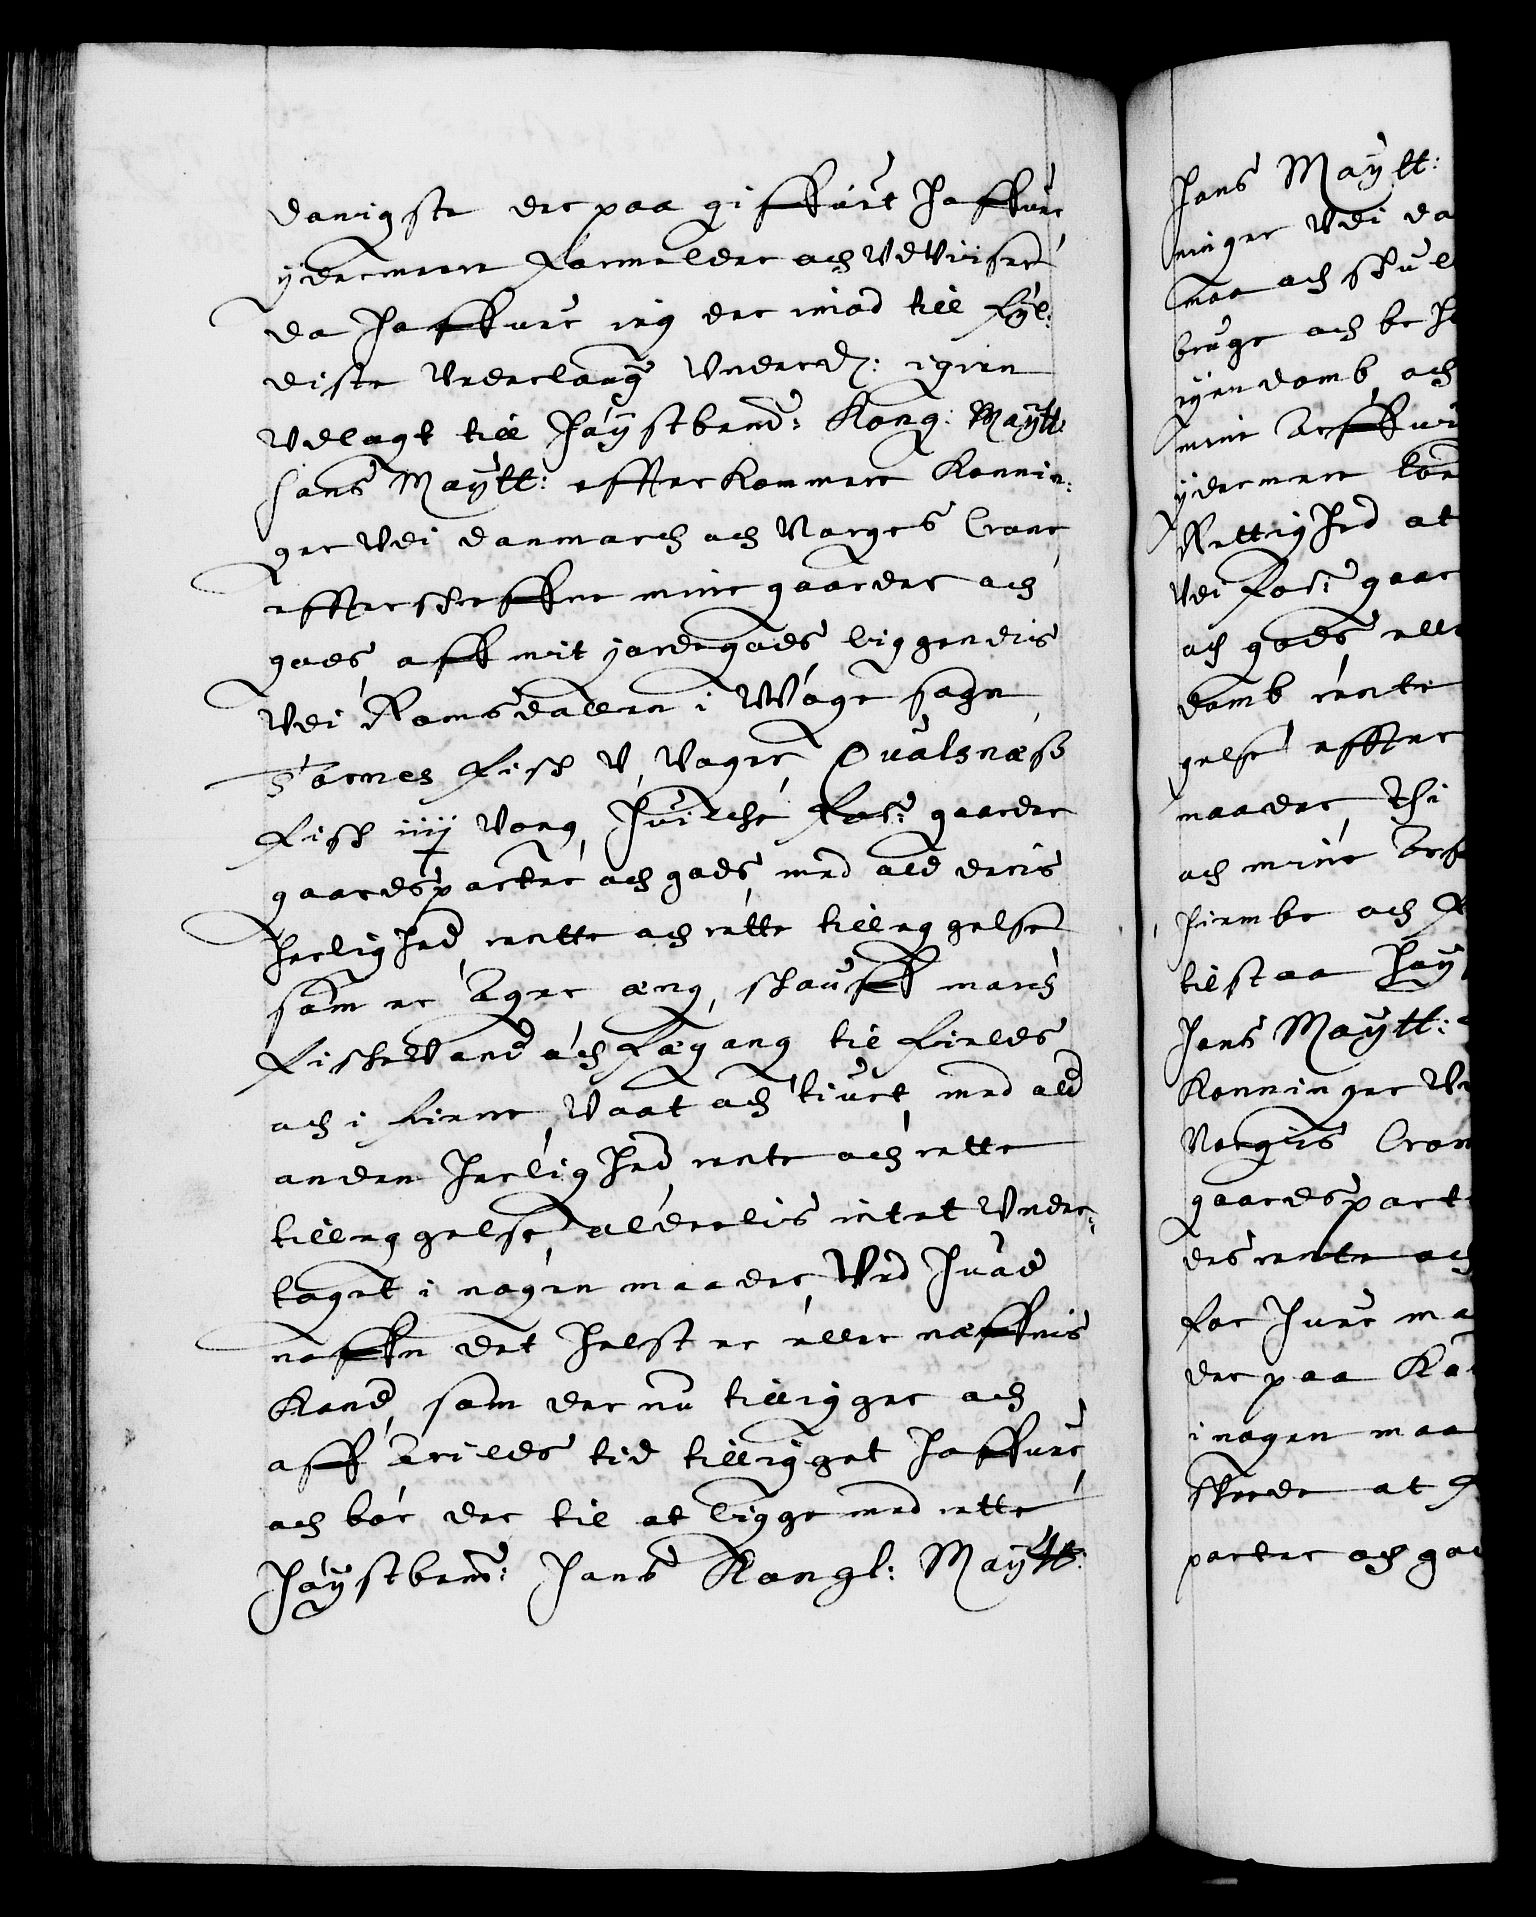 danigste der paa giffuet haffuer
ydermeere formelder och Vduiiser
da haffuer ieg der imod till fyl:
diste Vederlaug Vnderd: igien
Vdlagt till Høystbemd: Kong: Maÿtt:
hans Maÿtt: effterkommere Konnin:
ger Vdi danmarch och Norges Crone
effterschreffne mine gaarder och
gods, aff mit jordegods liggendis
Vdi Romsdallen i Waage sogn,
Tornes fisch V, Voger, Qualsnæss
fisch iiij Voug, Huilche for: gaarder
gaardsparter och gods, med ald deris
herlighed, rentte och rette tilleggelse
som er Ager æng, schouff march
fischeVand och fægang til fields
och i fierre, Vaat och tiurt, med ald
anden herlighed, rente och rette
tilleggelse, alderelis intet Vnder:
taget i nogen maader, Ved huad
naffn det helst er eller næffnis
Kand, som der nu tilligger och
aff Arilds tid tilligget haffuer
och bør der til at ligge med rette
Høystbemd: Hans Kongl: Maÿtt:

Hans Maÿtt:
ninger Vdi da
maa och schull
bruge och be h
eyendomb, och
mine Arffui
ydermere
Rettighed at
Vdi for: gaar
och gods, elle
domb rente
gelse effter
maader, Thi
och mine Arf
hiembe och
tilstaa Høy
Hans Maÿtt:
Konninger V
Norgis Cron
gaardspart
des rente och
for huer ma
der paa Ka
i nogen maa
skeede at
parter och go